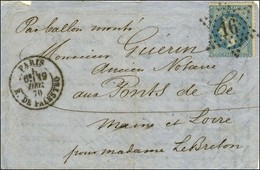 Par ballon monté
Monsieur Guérin
Ancien Notaire
aux Ponts de Cé
Maine et Loire
pour madame LeBreton
PARIS
19
DEC.
70
R. DE PALESTRO
16